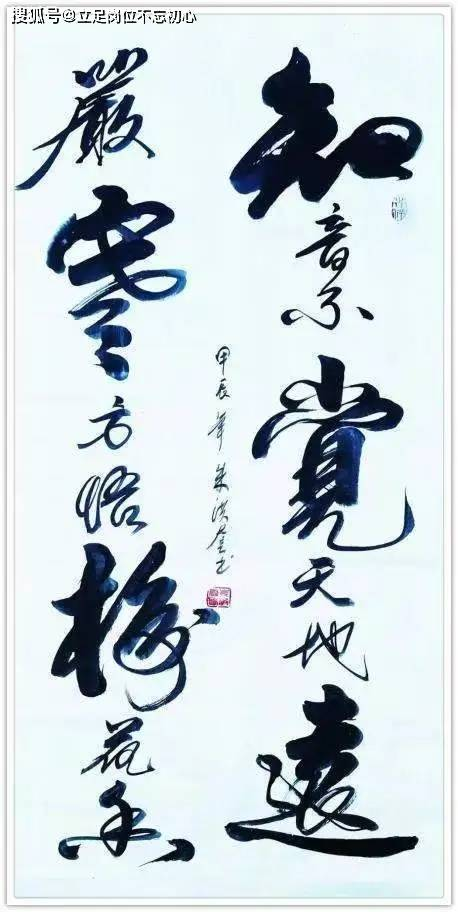 搜狐号@立足岗位不忘初心
知音不覺天地遠
嚴寒方悟梅花香
甲辰年朱洪书